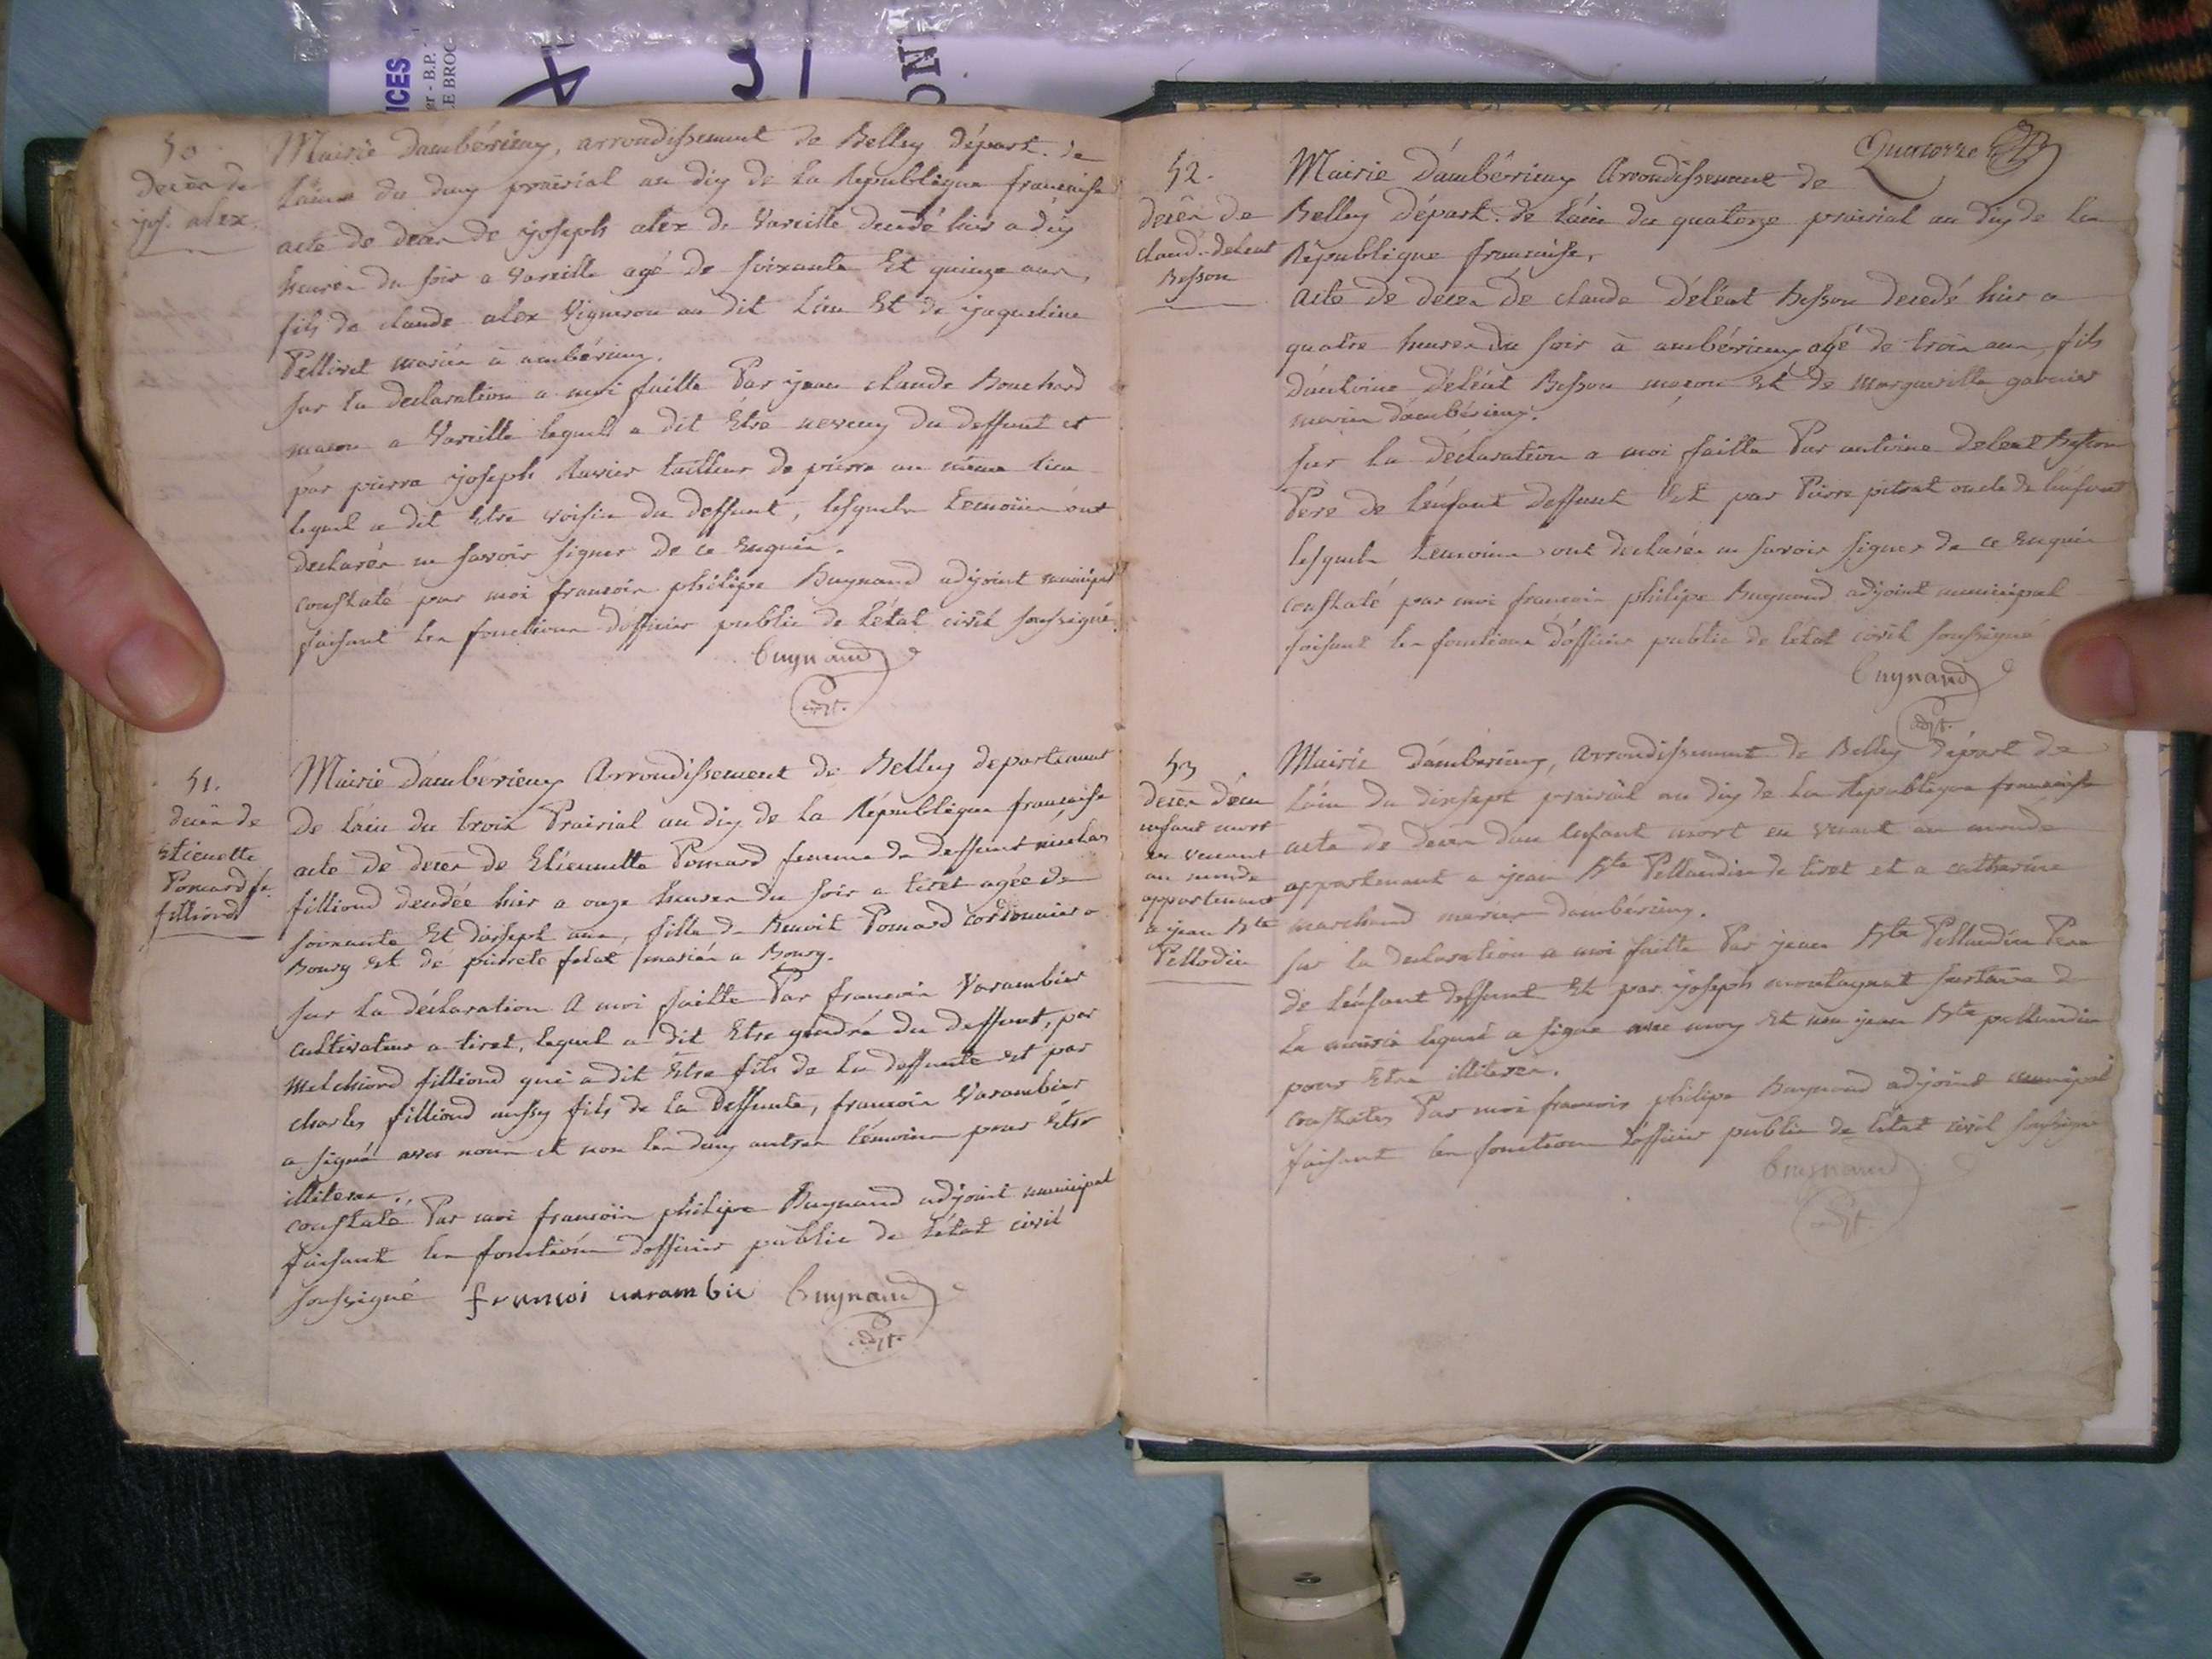 ICES
er - B.P.
LE BROC
ON
50
decèn de
jos. alex.
Mairie d'ambérieux, arrondissement de Belley départ. de
l'ain du deux prairial an dix de la République française
acte de decèn de joseph alex de Vareille decedé hier a dix
heures du soir a Vareille agé de soixante Et quinze ans,
fils de claude alex Vigneron au dit Lieu Et de jaqueline
Pellivet mariés à ambérieux.
sur la declaration a moi faitte Par jean claude Bouchard
macon a Vareille lequel a dit Etre neveux du deffunt et
par pierre joseph Ravier tailleur de pierre au même lieu
lequel a dit Etre voisin du deffunt, lesquels temoins ont
declarés ne savoir signer de ce Enquis.
constaté par moi francois philipe Buynand adjoint municipal
faisant les fonctions d'officier public de l'état civil soussigné.
buynand
adjt.
51.
decèn de
Etienette
Pomard fe.
filliond
Mairie d'ambérieux Arrondissement de Belley departement
De l'ain du trois Prairial an dix de la République française
acte de decèn de Etiennette Pomard femme de deffunt nicolas
filliond decedée hier a onze heures du soir a tiret agée de
soixante Et dixsept ans, fille de Benoit Pomard cordonnier a
Bourg Et de pierrete mariés a Bourg.
sur la déclaration A moi faitte Par francois Varambier
cultivateur a tiret, lequel a dit Etre gendre du deffunt, par
Melchiord filliond qui a dit Etre fils de la deffunte et par
charles filliond aussy fils de la Deffunte, francois Varambier
a signé avec nous et non les deux autres témoins pour Etre
illiteres.
constaté Par moi francois philipe Buynand adjoint municipal
faisant les fonctions d'officier public de l'état civil
soussigné francoi varambie buynand
adjt.
Quatorze
52.
decèn de
claud. deleat
Besson
Mairie D'ambérieux Arrondissement de
Belley Départ. de l'ain du quatorze prairial an dix de la
République française,
acte de decen de claude Déléat Besson decedé hier a
quatre heures du soir à ambérieux agé de trois ans, fils
d'antoine Déléat Besson maçon Et de margueritte garnier
mariés d'ambérieux.
sur la déclaration a moi faitte Par antoine deleat Besson
Père de l'enfant deffunt Et par Pierre pitrat oncle de l'enfant
lesquels temoins ont declarés ne savoir signer de ce enquis
constaté par moi francois philipe Buynand adjoint municipal
faisant les fonctions d'officier public de l'état civil soussigné
buynand
adjt.
53
decèn d'un
enfant mort
en venant
au monde
appartenant
a jean Bte
Pellodin
Mairie d'ambérieux, arrondissement de Belley départ de
l'ain du dixsept prairial an dix de la République française
acte de decen d'un Enfant mort en venant au monde
appartenant a jean Bte Pellaudin de tiret et a catherine
marchand mariés d'ambérieux.
sur la declaration a moi faitte Par jean Bte Pellaudin Pere
de l'enfant deffunt Et par joseph montagnat secretaire de
la mairie lequel a signé avec moy Et non jean Bte pellaudin
pour Etre illiteres.
constatés Par moi francois philipe Buynand adjoint municipal
faisant les fonctions d'officier public de l'état civil soussigné
buynand
adjt.